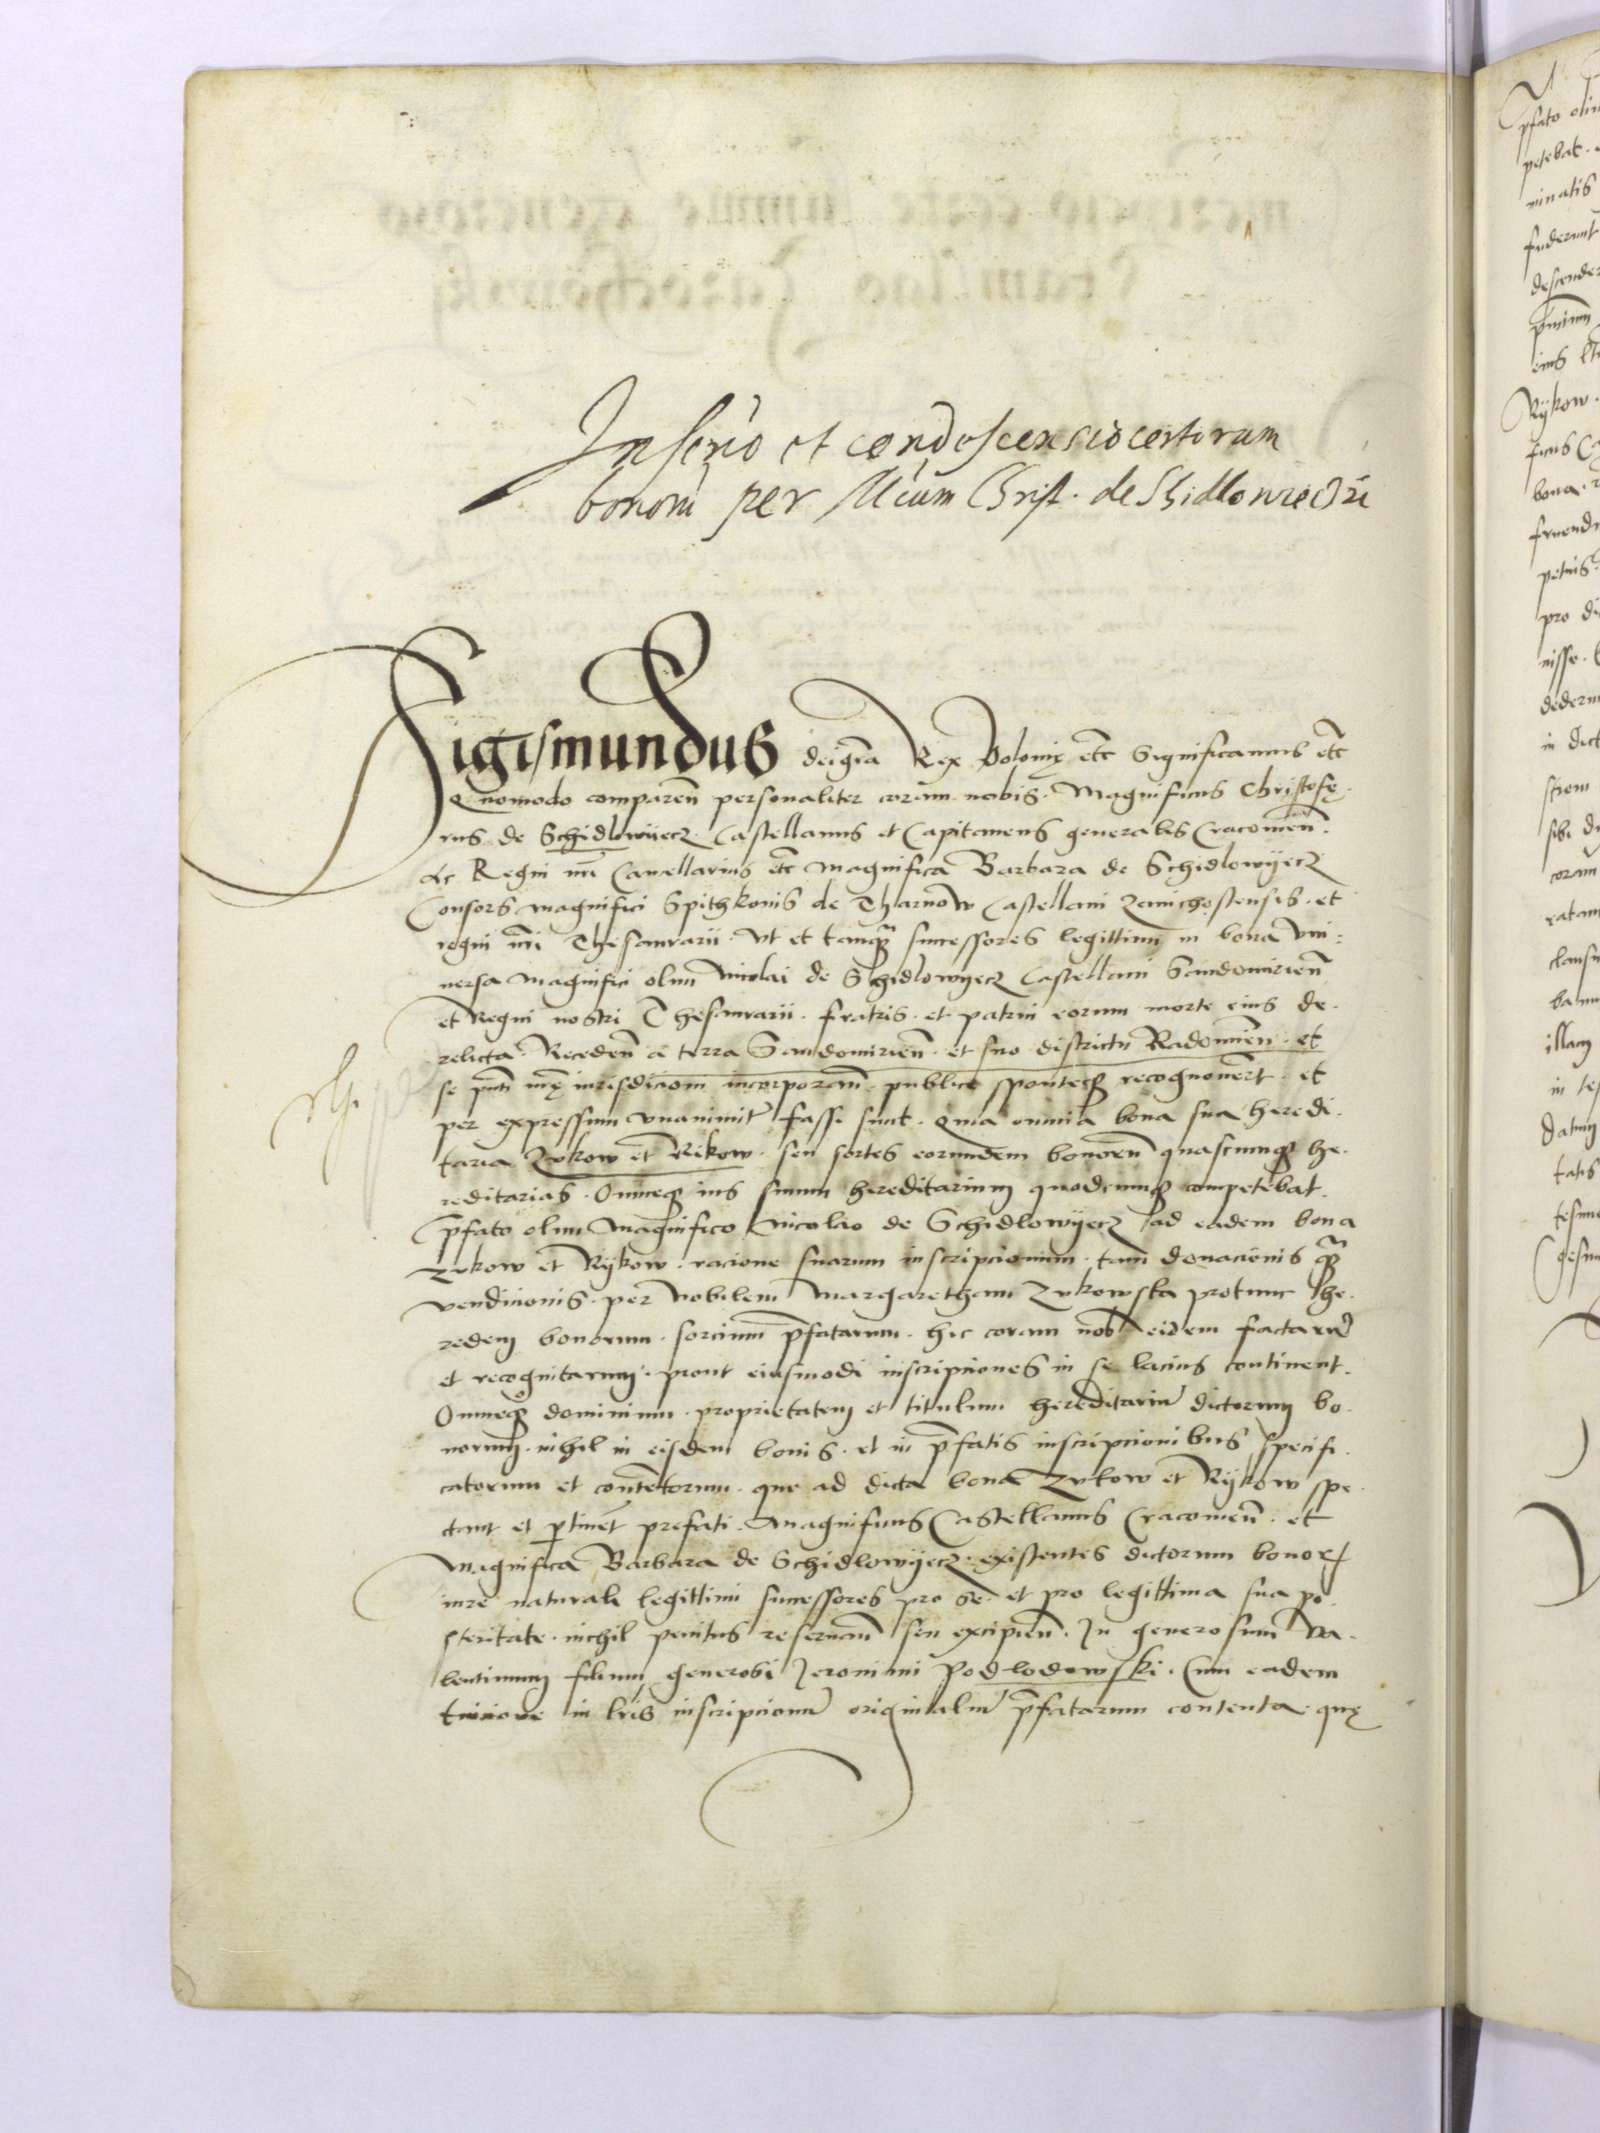 Inscrio et condescensio certorum
bonorū per Mcum Christ. de Shidlowieczi
Sigismundus dei gr̃a Rex Polonię etc̃ Significamus etc̃
Quomodo comparen̄ personaliter coram nobis. Magnificus Christofę.
rus de Schidlowijecz. Castellanus et Capitaneus generalis Cracouien̄.
Ac Regni nr̃i Cancellarius etc̃ magnifica Barbara de Schidlowijecz
Consors magnifici Spithkonis de Tharnow Castellani Zawichostensis. et
regni nr̃i Thesaurarii. Vt et tanq̃ȝ successores legittimi in bona vni=
uersa magnifici olim Nicolai de Schidlowijecz Castellani Sandomirien̄
et Regni nostri Thesaurarii. fratris. et patrui eorum morte eius de.
relicta. Receden̄ a terra Sandomirien̄. et suo districtu Radomien̄. et
se pn̄ti nr̃ę iurisdicioni incorporan̄. publice sponteqȝ recognouer̄t. et
per expressum vnanimit̃ fassi sunt. Quia omnia bona sua heredi.
taria Zukow et Rikow. seu sortes eorundem bonor̄u quascumqȝ he.
reditarias. Omneqȝ ius suum hereditarium quodcumqȝ competebat.
p̄fato olim Magnifico Nicolao de Schidlowijecz ad eadem bona
Zukow et Rijkow. racione suarum inscripcionum. tam donacionis q̃ȝ
vendicionis. per Nobilem Margaretham Zukowska protunc he.
redem bonorum. sorcium p̄fatarum. hic coram nob̄ eidem factarū
et recognitarum. prout eiusmodi inscripciones in se lacius continent.
Omneqȝ dominium. proprietatem et titulum hereditariū dictorum bo.
norum. nihil in eisdem bonis. et in p̄fatis inscripcionibus specifi.
catorum et conten̄torum. que ad dicta bona Zukow et Rijkow spe.
ctant et p̱tinēt prefati. Magnificus Castellanus Cracouien̄. et
Magnifica Barbara de Schidlowijecz. existentes dictorum bonorꝝ
iure naturali legittimi successores pro se. et pro legittima sua po.
steritate. nichil penitus reseruan̄ seu excipien̄. In generosum Va.
lentinum filium generosi Jeronimi Podlodowski. Cum eadem
in lr̃is inscripcionū originaliū p̄fatarum contenta. quę